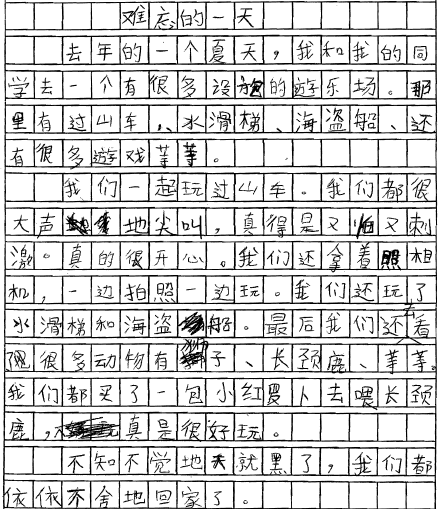 难忘的一天
去年的一个夏天，我和我的同
学去一个有很多设施的遊乐场。那
里有过山车、水滑梯、海盗船、还
有很多遊戏等等。
我们一起玩过山车。我们都很
大声地尖叫，真得是又怕又刺
激。真的很开心。我们还拿着照相
机，一边拍照一边玩。我们还玩了
水滑梯和海盗船。最后我们还去看
很多动物有狮子、长颈鹿、等等。
我们都买了一包小红萝卜去喂长颈
鹿，真是很好玩。
不知不觉地天就黑了，我们都
依依不舍地回家了。